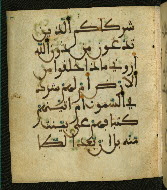 شركاكم الذين
تدعون من دون الله
اروني ماذا خلقوا من
الارض ام لهم شرك
في السموت ام اتينهم
كتبا فهم على بينت
منه بل ان يعد الظا